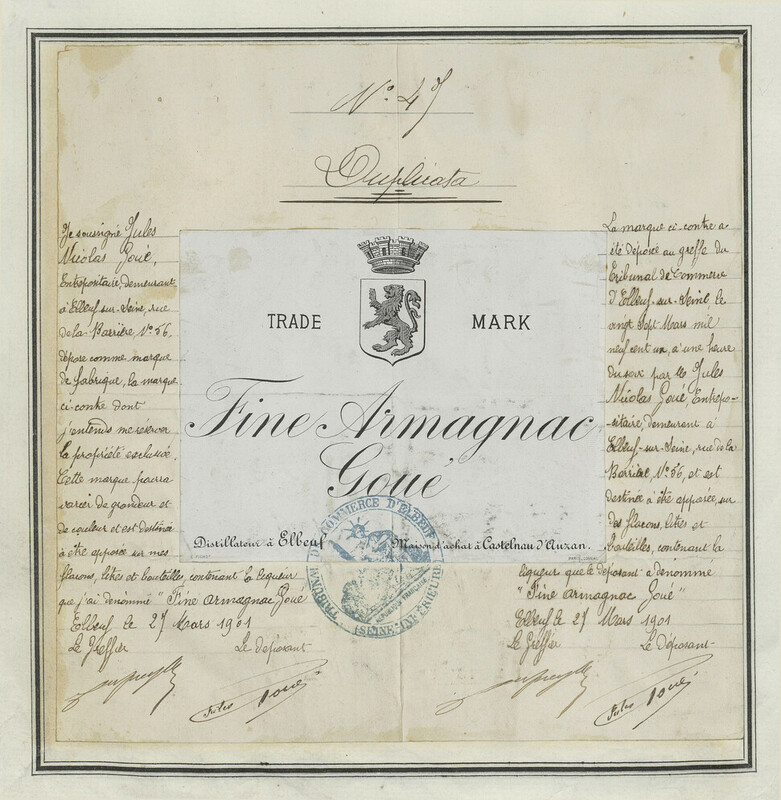 N° 47
Duplicata
Je soussigné Jules
Nicolas Goué,
Entrepositaire, demeurant
à Elbeuf-sur-Seine, rue
de la Barrière, N° 56,
dépose comme marque
de fabrique, la marque
ci-contre dont
j'entends me réserver
la propriété exclusive.
Cette marque pourra
varier de grandeur et
de couleur et est destinée
à être apposée sur mes
flacons, litres et bouteilles, contenant la liqueur
que j'ai dénommé "Fine Armagnac Goué"
Elbeuf le 27 Mars 1901
Le Greffier Le déposant
Jules Goué
TRADE MARK
Fine Armagnac
Goué
Distillateur à Elbeuf Maison d'achat à Castelnau d'Auzan.
TRIBUNAL DE COMMERCE D'ELBEUF
(SEINE-INFÉRIEURE)
RÉPUBLIQUE FRANÇAISE
La marque ci-contre a
été déposée au greffe du
Tribunal de Commerce
d'Elbeuf-sur-Seine le
vingt Sept Mars mil
neuf cent un, à une heure
du soir par Me Jules
Nicolas Goué, Entrepo-
sitaire, demeurant à
Elbeuf-sur-Seine, rue de la
Barrière, N° 56, et est
destinée à être apposée, sur
des flacons, litres et
bouteilles, contenant la
liqueur que le déposant a dénommé
"Fine Armagnac Goué"
Elbeuf le 27 Mars 1901
Le Greffier Le déposant
Jules Goué